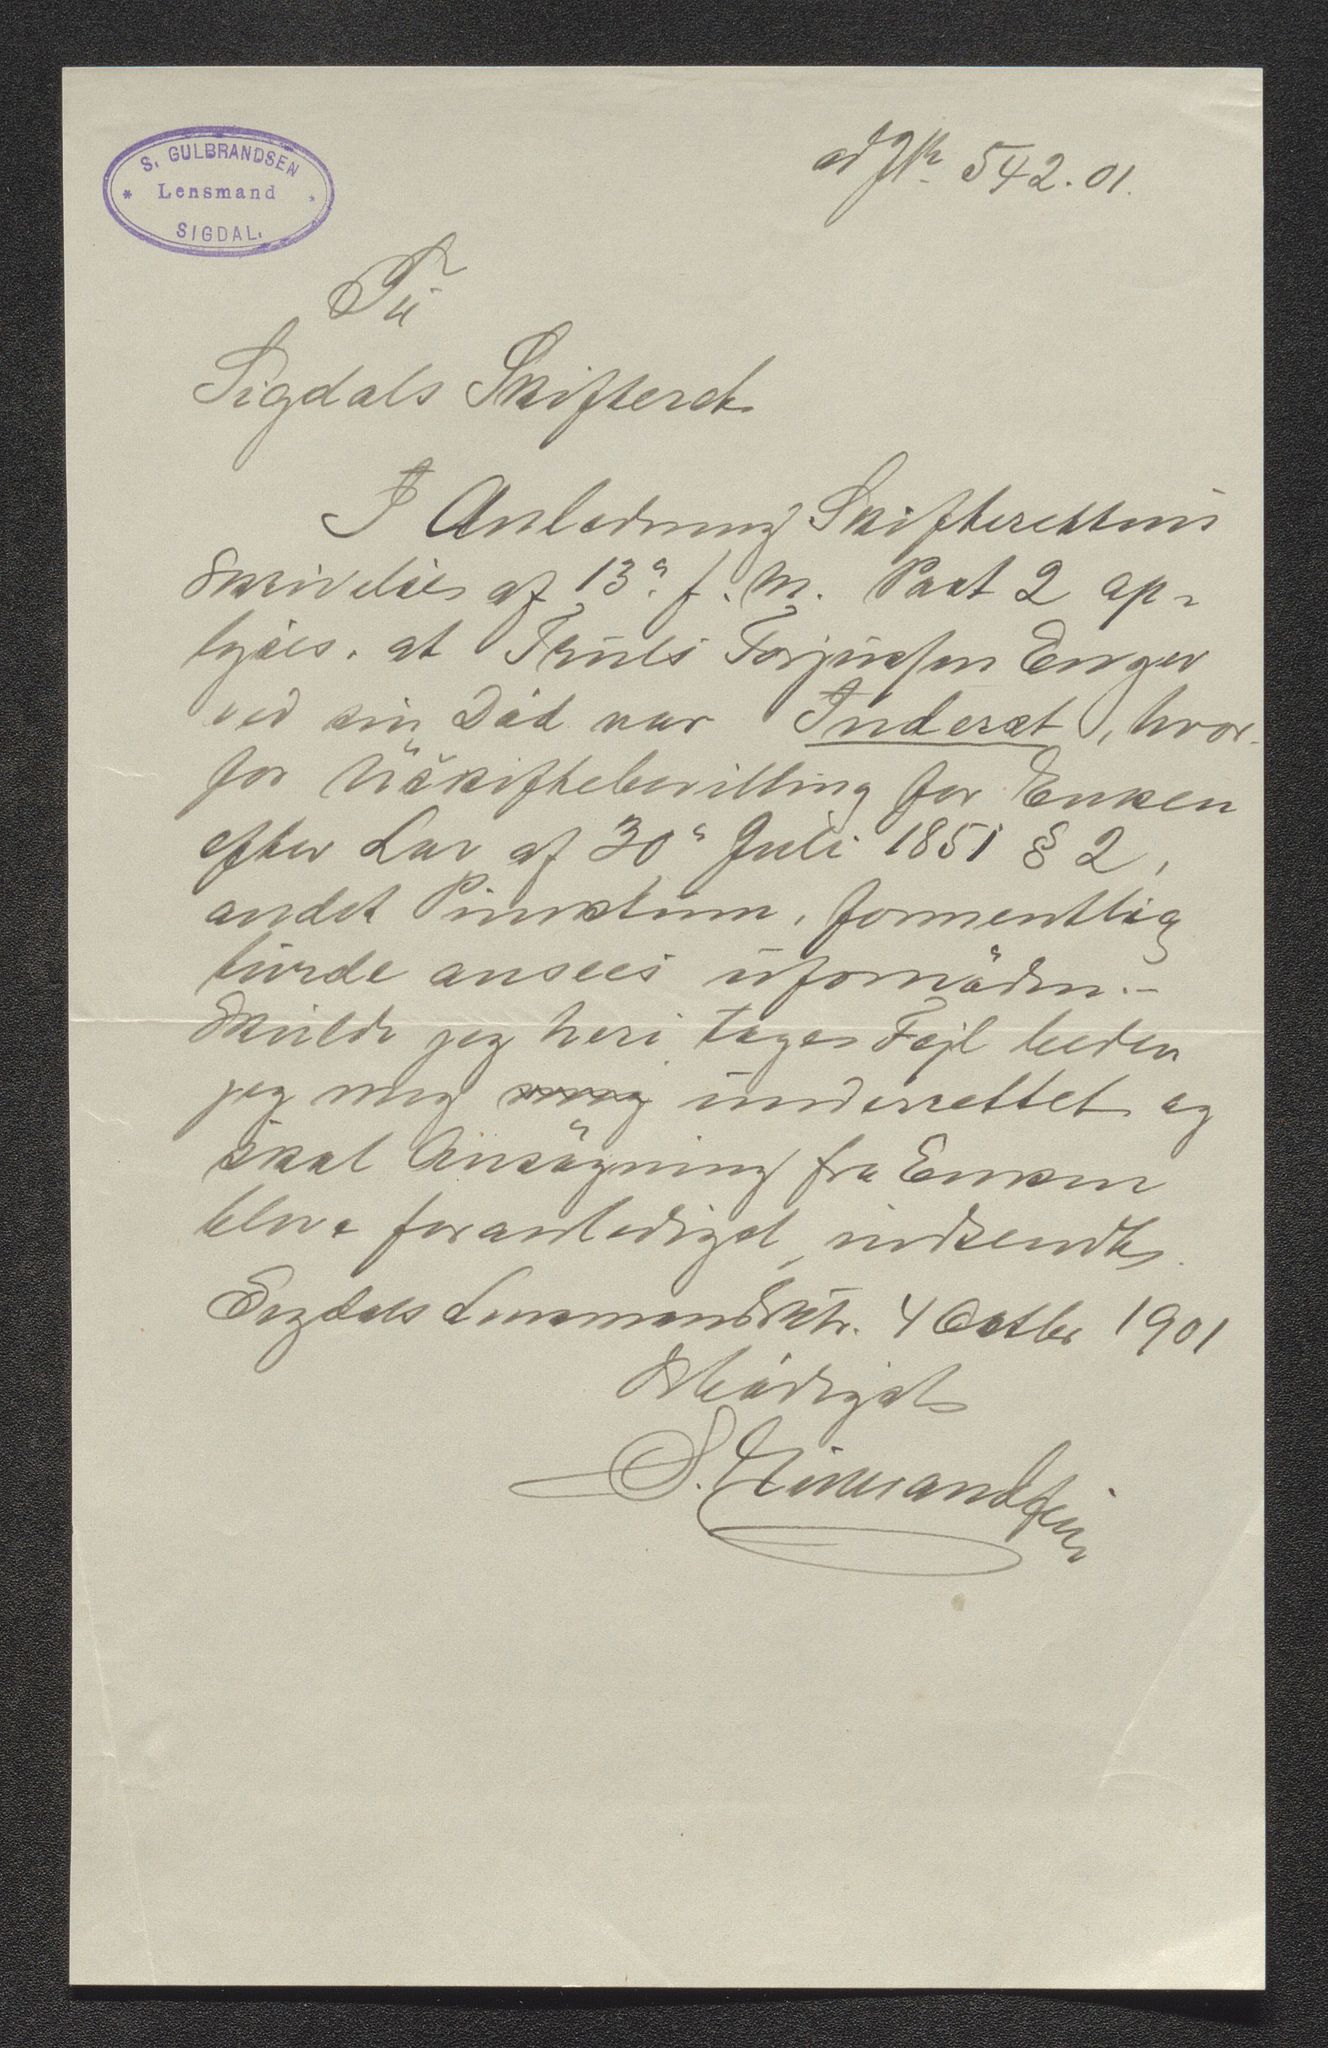 S. GULBRANDSEN
Lensmand
SIGDAL.
ad JN 542.01.
Til
Sigdals Skifteret
I Anledning Skifterettens
Skrivelse af 13de f. M. Post 2 op-
lyses, at Truls Torjussen Enger
ved sin Död var Inderst, hvor-
for Uskiftebevilling for Enken
efter Lov af 30de Juli 1851 § 2,
andet Punktum, formentlig
burde ansees ufornöden. –
Skulde jeg heri tages Fejl bedes
jeg mig underrettet og
skal Ansögning fra Enken
blive foranlediget indsendt.
Sigdals Lensmandsktr. 4 Octbr 1901
Ærbödigst
S. Gulbrandsen